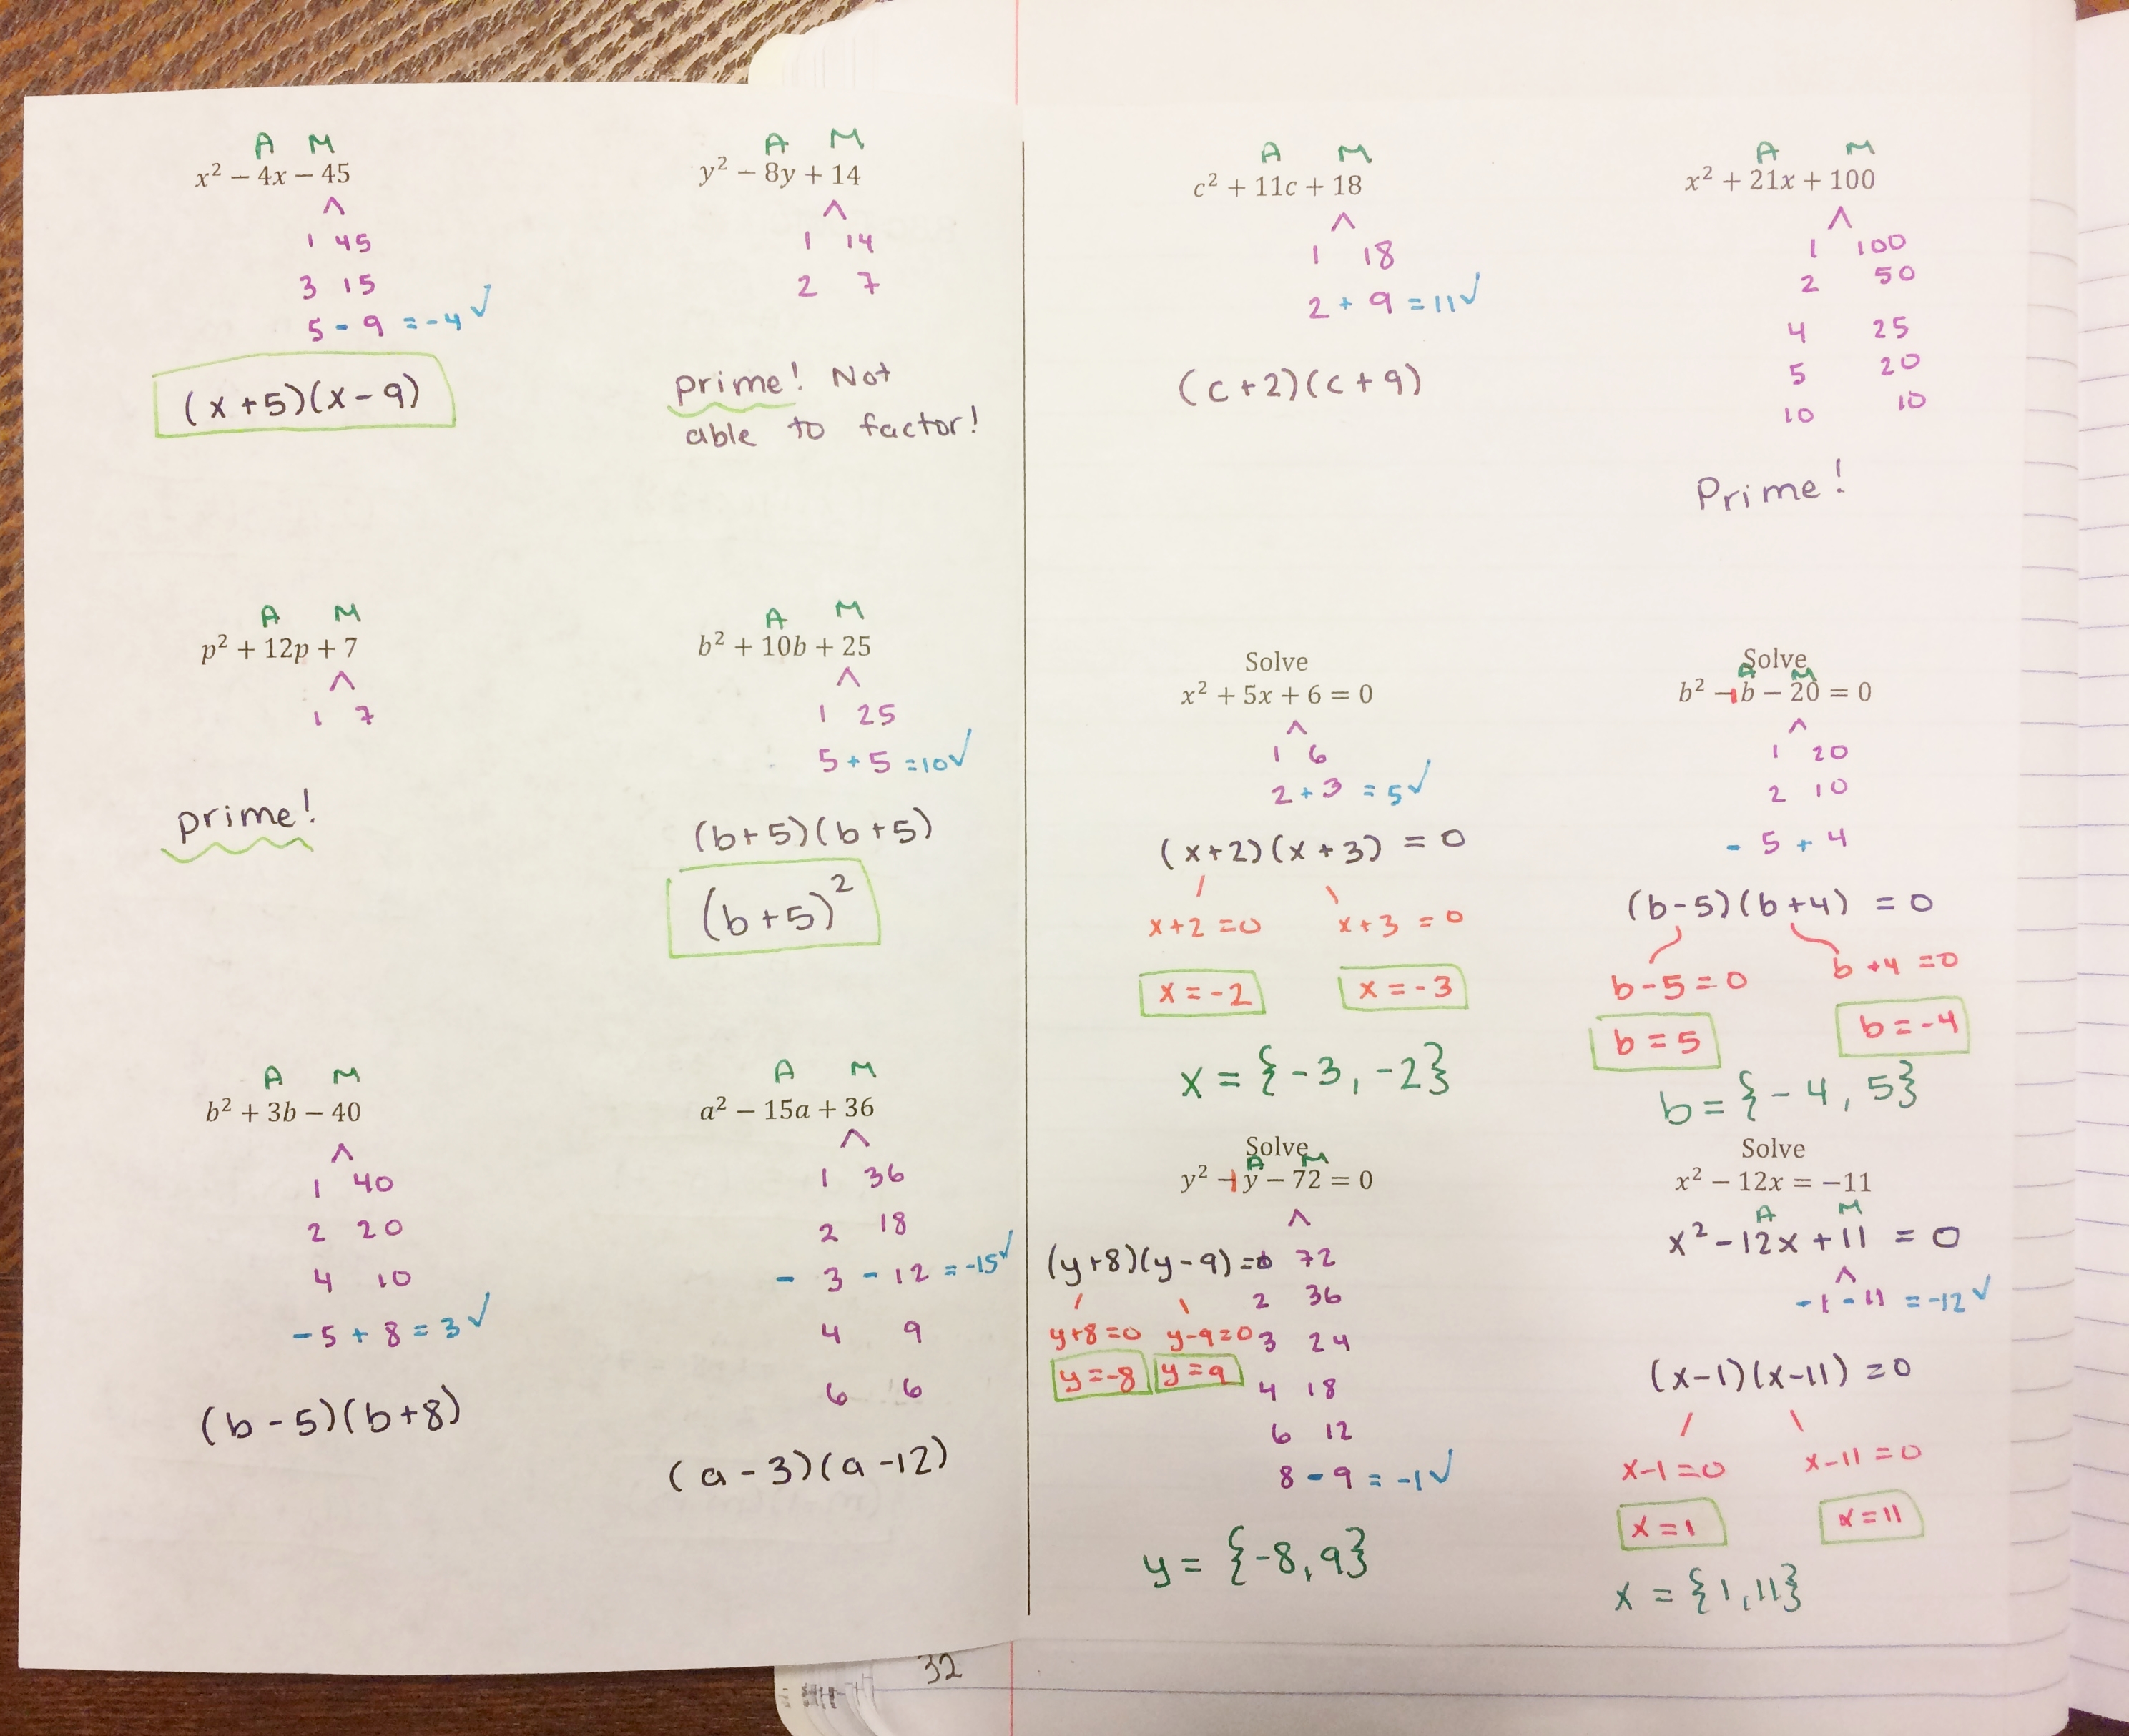 A M
x² − 4x − 45
^
1 45
3 15
5 - 9 = -4 ✓
(x+5)(x-9)
A M
y² − 8y + 14
^
1 14
2 7
prime! Not
able to factor!
A M
p² + 12p + 7
^
1 7
prime!
A M
b² + 10b + 25
^
1 25
5 + 5 = 10 ✓
(b+5)(b+5)
(b+5)²
A M
b² + 3b − 40
^
1 40
2 20
4 10
-5 + 8 = 3 ✓
(b-5)(b+8)
A M
a² − 15a + 36
^
1 36
2 18
- 3 - 12 = -15 ✓
4 9
6 6
(a-3)(a-12)
A M
c² + 11c + 18
^
1 18
2 + 9 = 11 ✓
(c+2)(c+9)
A M
x² + 21x + 100
^
1 100
2 50
4 25
5 20
10 10
Prime!
Solve
x² + 5x + 6 = 0
^
1 6
2 + 3 = 5 ✓
(x+2)(x+3) = 0
x+2=0 x+3=0
x=-2 x=-3
x = {-3, -2}
Solve
A M
b² −1b − 20 = 0
^
1 20
2 10
- 5 + 4
(b-5)(b+4) = 0
b-5=0 b+4=0
b=5 b=-4
b = {-4, 5}
Solve
A M
y² −1y − 72 = 0
^
(y+8)(y-9)=0 72
2 36
y+8=0 y-9=0 3 24
y=-8 y=9 4 18
6 12
8 - 9 = -1 ✓
y = {-8, 9}
Solve
x² − 12x = −11
A M
x² - 12x + 11 = 0
^
-1 - 11 = -12 ✓
(x-1)(x-11)=0
x-1=0 x-11=0
x=1 x=11
x = {1, 11}
32